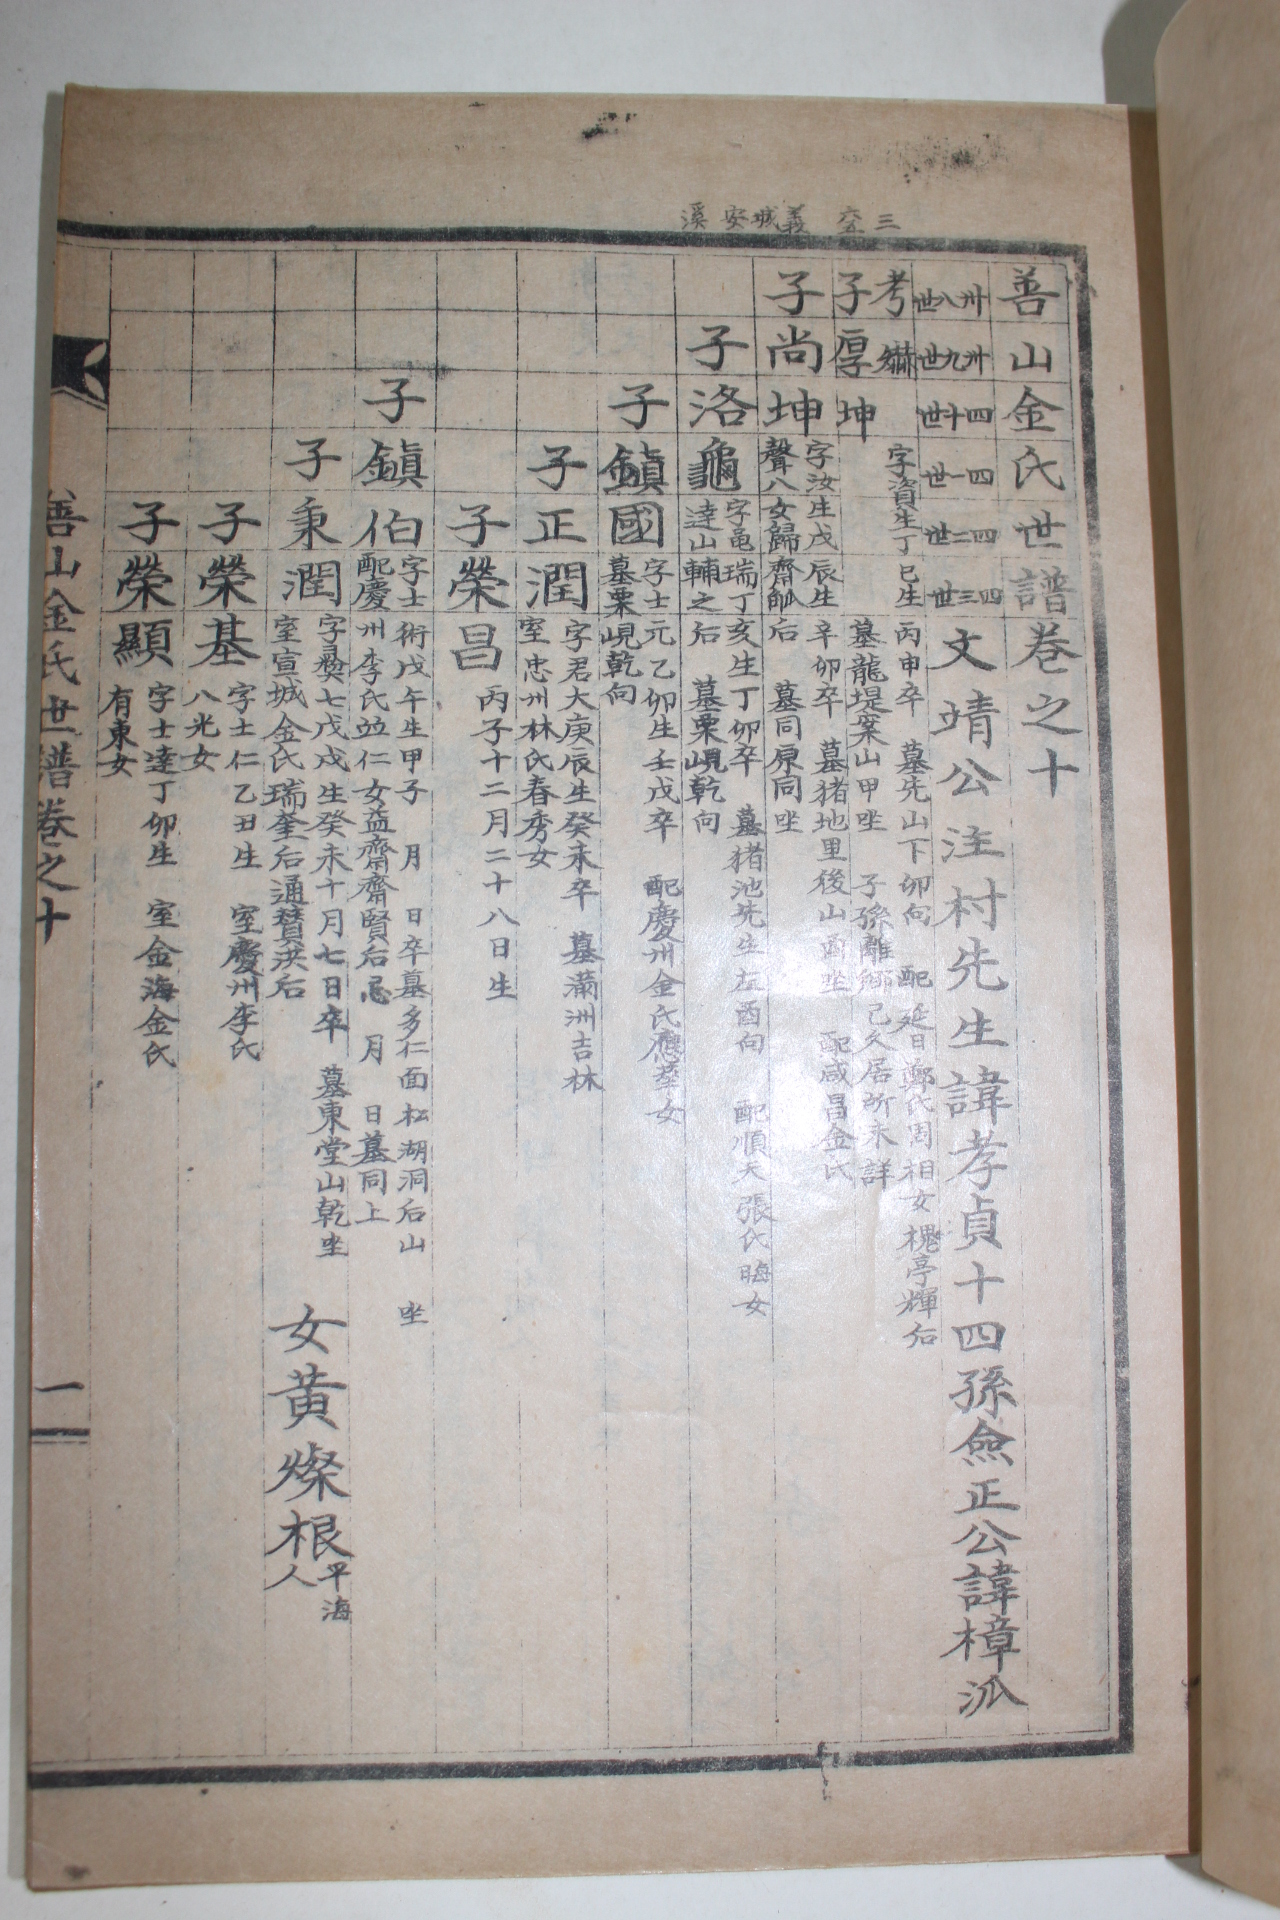 三 六至 義城安溪
善山金氏世譜卷之十
卅八世 卅九世 四十世 四一世 四二世 四三世
文靖公注村先生諱孝貞十四孫僉正公諱樟派
考 字資生丁巳生丙申卒 墓先山下卯向 配延日鄭氏周相女槐亭輝后
子厚坤 墓龍堤案山甲坐 子孫離鄉已久居所未詳
子尚坤 字汝生戊辰生辛卯卒 墓猪地里後山酉坐 配咸昌金氏
聲八女歸齋后 墓同原同坐
子洛龜 字黽瑞丁亥生丁卯卒 墓猪池先生左酉向 配順天張氏晦女
達山輔之后 墓栗峴乾向
子鎭國 字士元乙卯生壬戊卒 配慶州金氏應華女
墓栗峴乾向
子正潤 字君大庚辰生癸未卒 墓滿洲吉林
室忠州林氏春秀女
子榮昌 丙子十二月二十八日生
子鎭伯 字士術戊午生甲子 月 日卒墓多仁面松湖洞后山 坐
配慶州李氏竝仁女益齋齊賢后忌 月 日墓同上
子秉潤 字彛七戊戌生癸未十月七日卒 墓東堂山乾坐
室宣城金氏瑞奎后通贊洪后
女黃燦根 平海人
子榮基 字士仁乙丑生 室慶州李氏
八光女
子榮顯 字士達丁卯生 室金海金氏
有東女
善山金氏世譜卷之十
一